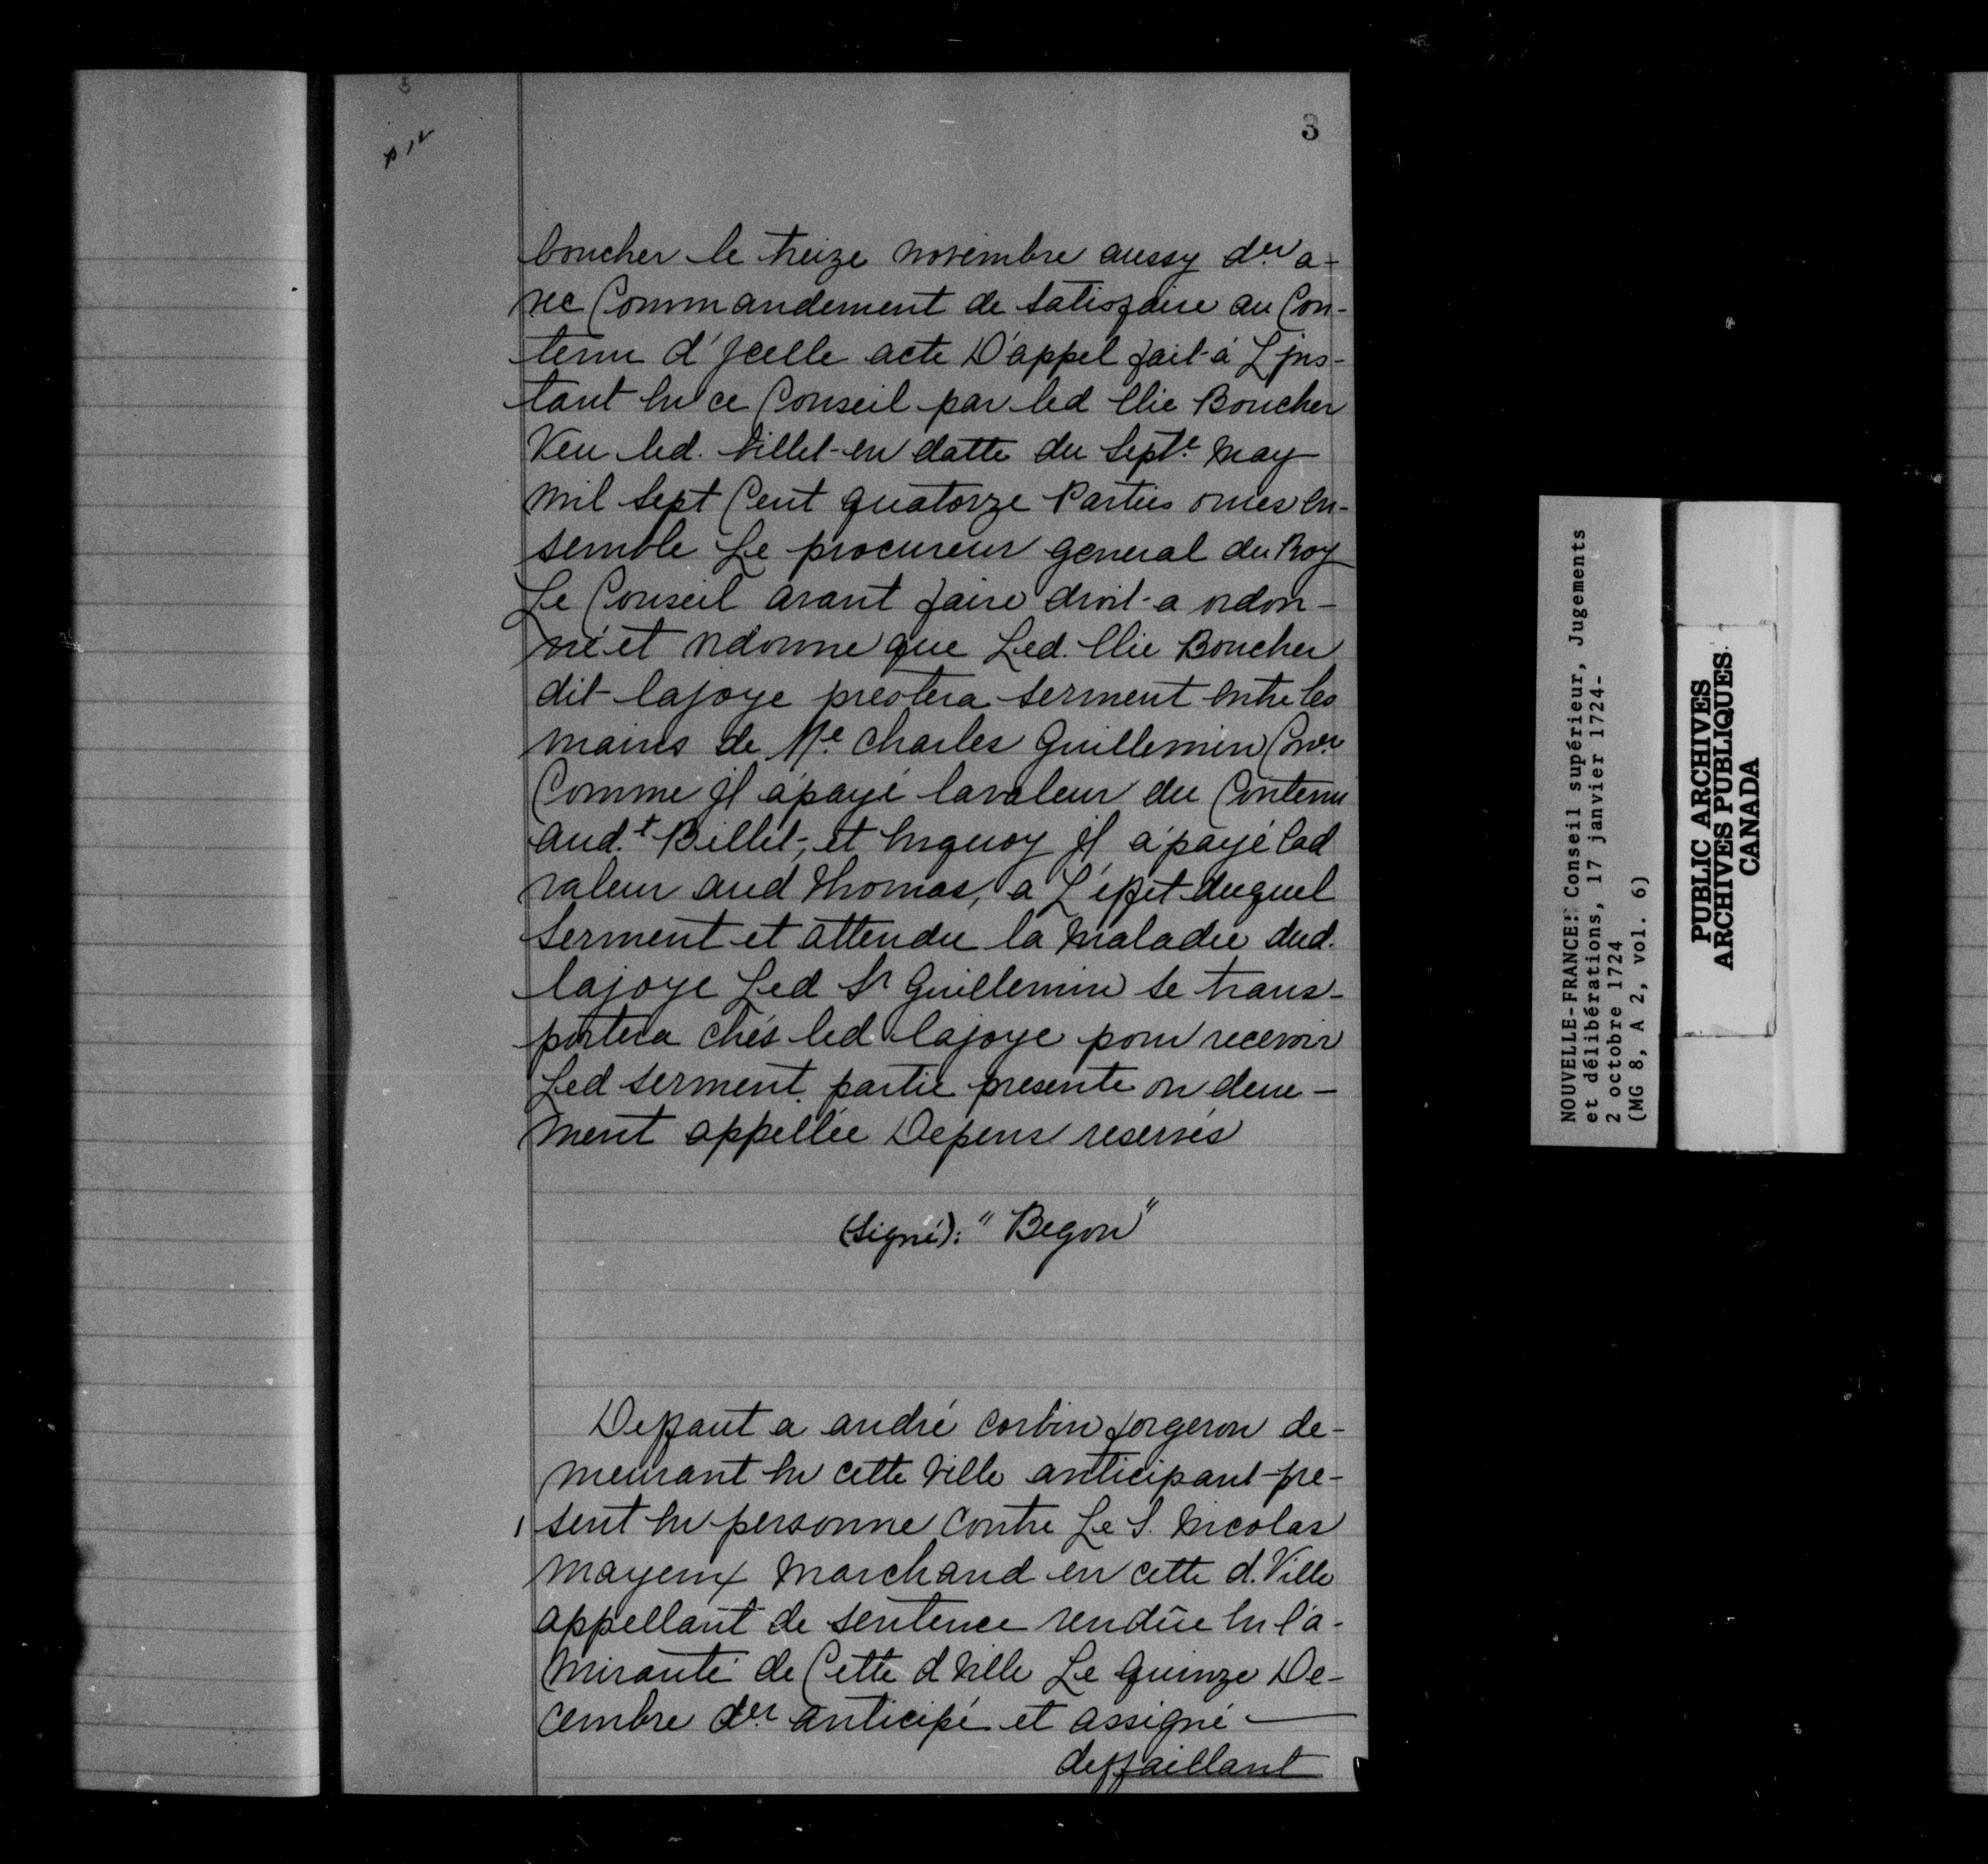 3
p 12
boucher le treize novembre aussy der a-
vec Commandement de satisfaire au Con-
tenu d'Jcelle acte D'appel fait à L'jns-
tant en ce Conseil par led Elie Boucher
Veu led. billet en datte du septe may
mil sept Cent quatorze Parties ouies en-
semble Le procureur general du Roy
Le Conseil avant faire droit a ordon-
né et ordonne que Led. Elie Boucher
dit lajoye prestera serment entre les
mains de Me charles Guillemin Coner
Comme jl a payé lavaleur du Contenu
aud.t Billet, et enquoy jl a payé lad
valeur aud Thomas, a L'effet duquel
serment et attendu la maladie dud.
lajoye Led Sr Guillemin se trans-
portera chés led. lajoye pour recevoir
Led serment partie presente ou deue-
ment appellée Depens reservés
(Signé): "Begon"
Deffaut a andré corbin forgeron de-
meurant en cette Ville anticipant pre-
sent en personne contre Le S. Nicolas
mayeux marchand en cette d. Ville
appellant de sentence rendüe en l'a-
mirauté de Cette d Ville Le quinze De-
cembre der anticipé et assigné
deffaillant
NOUVELLE-FRANCE: Conseil supérieur, Jugements
et délibérations, 17 janvier 1724-
2 octobre 1724
(MG 8, A 2, vol. 6)
PUBLIC ARCHIVES
ARCHIVES PUBLIQUES
CANADA